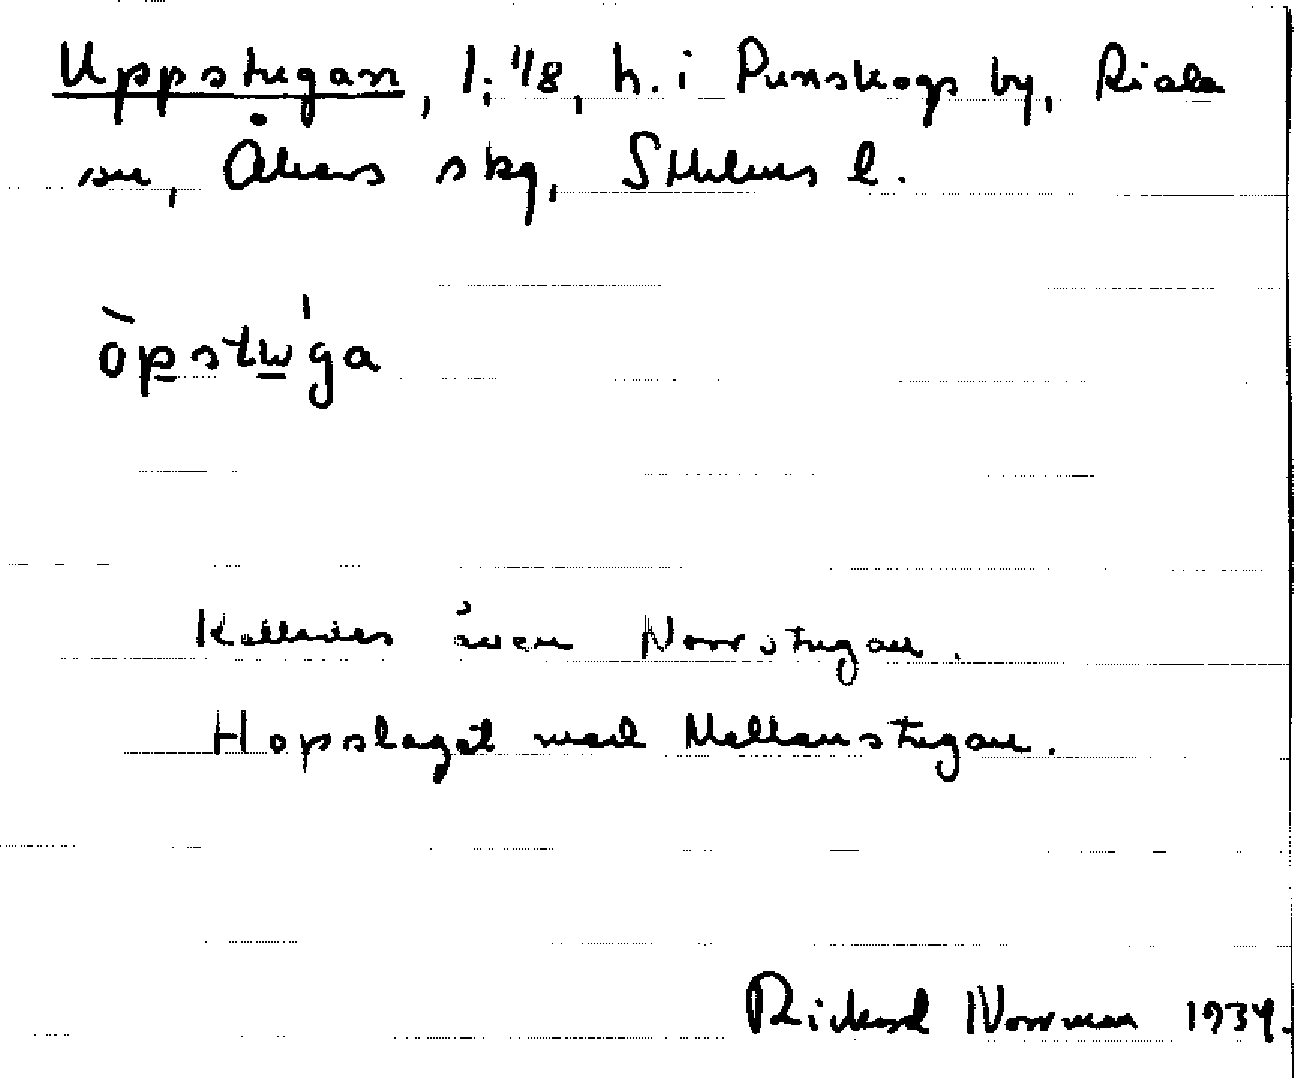 Uppstugan, 1:1/8, h. i Punskogs by, Riala
sn, Åkers skg, Sthlms l.
òpstw̲'ga
Kallades även Norrstugan.
Hopslaget med Mellanstugan.
Rickard Norrman 1934.